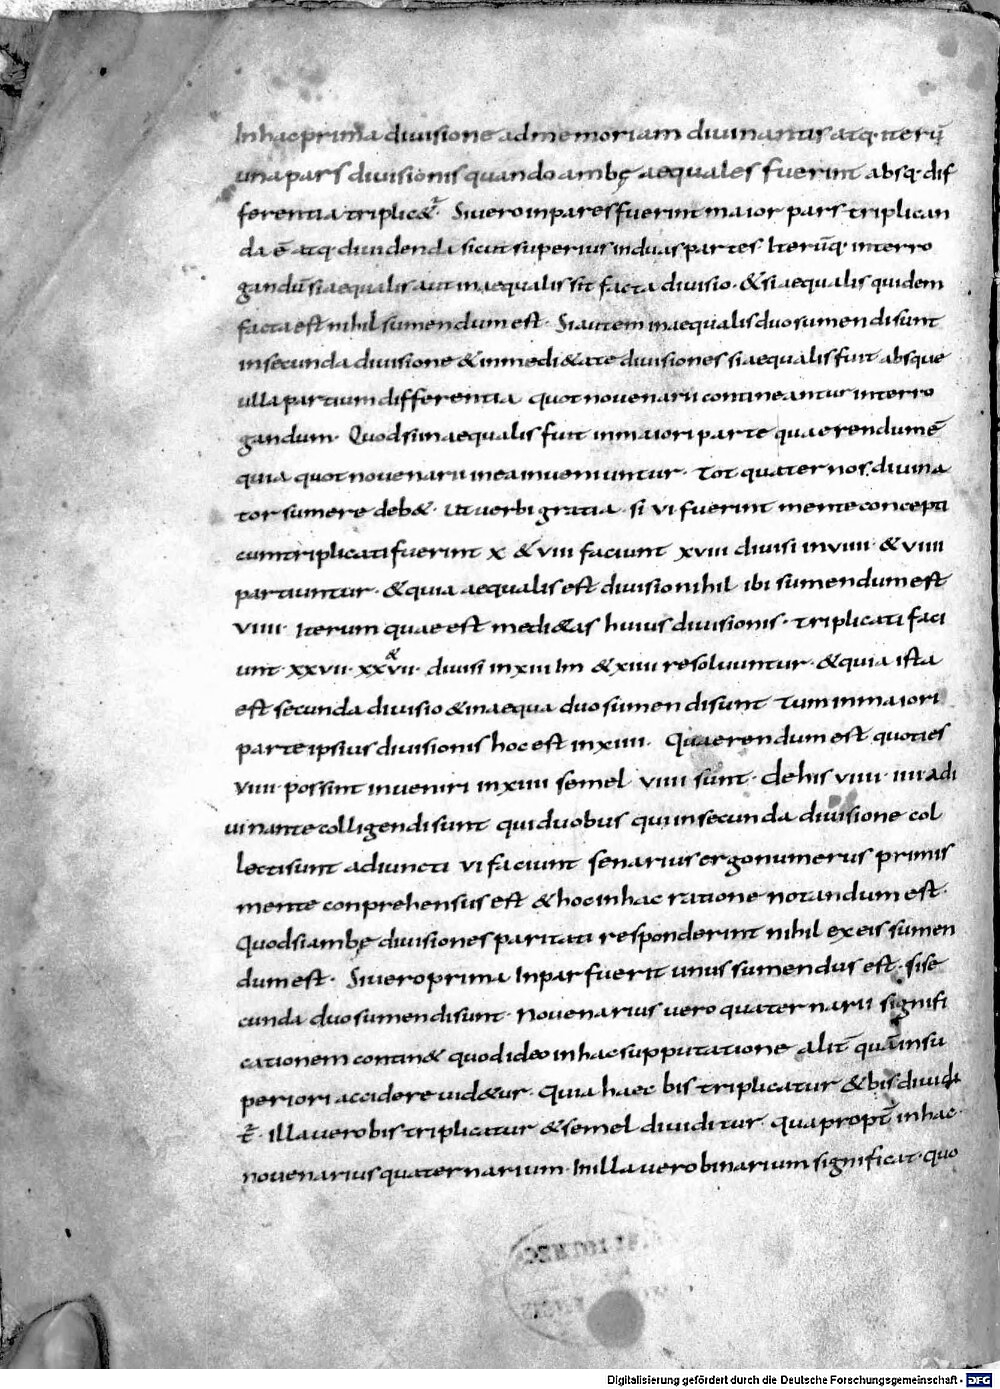 In hac prima diuisione ad memoriam diuinantis atq· iterū
una pars diuisionis quando ambę aequales fuerint absq· dif
ferentia triplic&ᷣ· Si uero inpares fuerint maior pars triplican
da ē atq· diuidenda sicut superius in duas partes· Iterūq· interro
gandū si aequalis aut inaequalis sit facta diuisio· & si aequalis quidem
facta est nihil sumendum est· Si autem inaequalis duo sumendi sunt
in secunda diuisione & in medi&ate diuisiones si aequalis fuit absque
ulla partium differentia quot nouenarii contineantur interro
gandum· Quod si inaequalis fuit in maiori parte quaerendum ē
quia quot nouenarii in ea inueniuntur· Tot quaternos diuina
tor sumere deb&· Ut uerbi gratia· si vi fuerint mente concepti
cum triplicati fuerint x & viii faciunt xviii diuisi in viiii· & viiii
partiuntur· & quia aequalis est diuisio nihil ibi sumendum est
viiii· Iterum quae est medi&as huius diuisionis· Triplicati faci
unt· xxvii· xx&vii· diuisi in xiii Im & xiiii resoluuntur· & quia ista
est secunda diuisio & inaequa duo sumendi sunt Tum in maiori
parte ipsius diuisionis hoc est in xiiii· Quaerendum est quoties
viiii· possint inueniri in xiiii semel viiii sunt· de his viiii· iiii adi
uinante colligendi sunt qui duobus qui in secunda diuisione col
lecti sunt adiuncti vi faciunt senarius ergo numerus primis
mente conprehensus est & hoc in hac ratione notandum est·
Quod si ambę diuisiones paritati responderint nihil ex eis sumen
dum est· Si uero prima Inpar fuerit unus sumendus est· si se
cunda duo sumendi sunt· Nouenarius uero quaternarii signifi
cationem contin& quod ideo in hac supputatione alit̄ quā in su
periori accidere uid&ur· Quia haec bis triplicatur & bis diuidi
tᷣ· illa uero bis triplicatur & semel diuiditur· quapropt̄ in hac·
nouenarius quaternarium· In illa uero binarium significat· quo
Digitalisierung gefördert durch die Deutsche Forschungsgemeinschaft - DFG